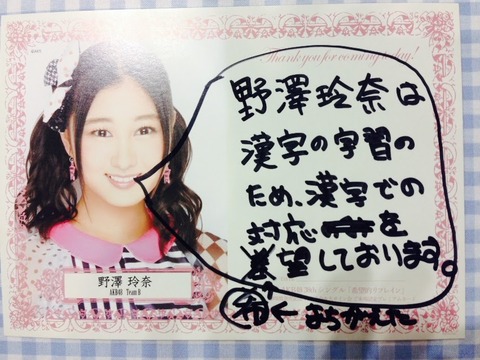 Thank you for coming today!
野澤玲奈は
漢字の学習の
ため、漢字での
対応を
望しております。
希←まちがえた
シングル「希望的リフレイン」
野澤 玲奈
AKB48 Team B